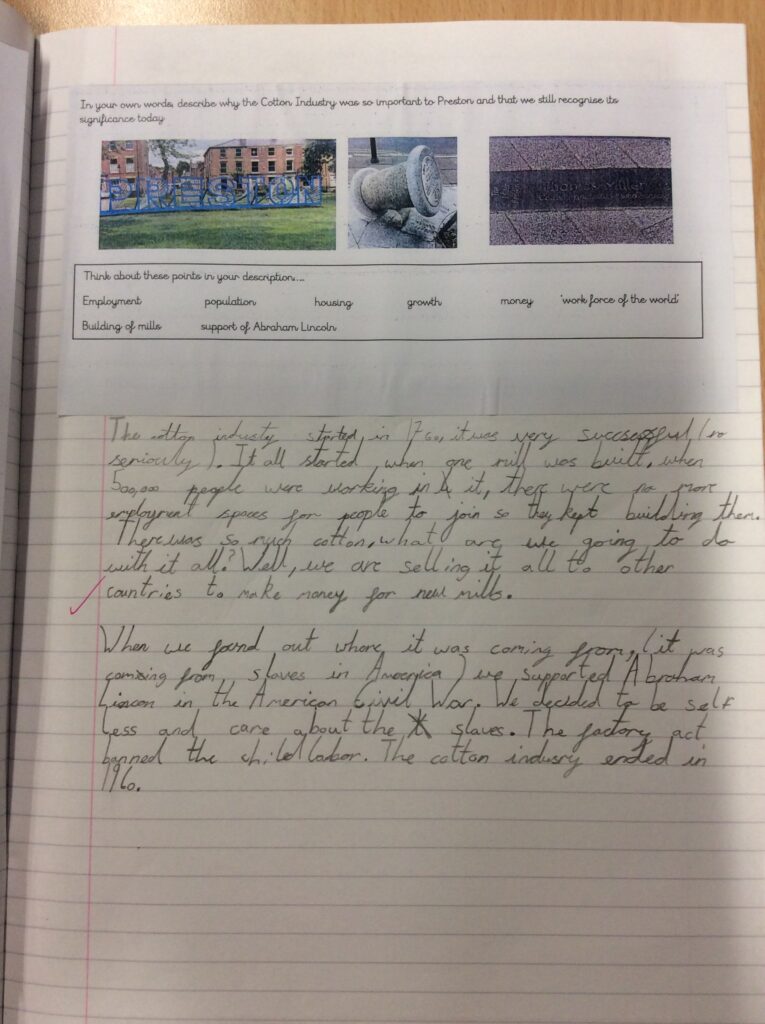 In your own words, describe why the Cotton Industry was so important to Preston and that we still recognise its
significance today
PRESTON
Think about these points in your description....
Employment population housing growth money 'work force of the world'
Building of mills support of Abraham Lincoln
The cotton industy started, in 1760, it was very succsessful (no
seriously). It all started when one mill was built, when
500,000 people were working in it, there were no more
employment spaces for people to join so they kept building them.
There was so much cotton, what are we going to do
with it all? Well, we are selling it all to other
countries to make money for new mills.
When we found out where it was coming from, (it was
coming from slaves in Amaerica) we supported Abraham
Lincon in the American Civil War. We decided to be self
less and care about the slaves. The factory act
banned the child labor. The cotton indusry ended in
1960.